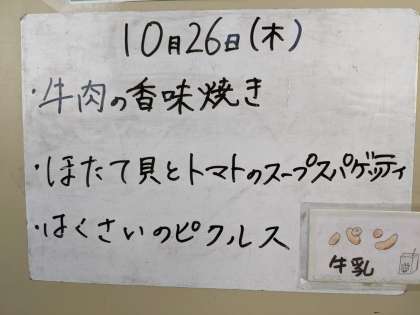 10月26日(木)
・牛肉の香味焼き
・ほたて貝とトマトのスープスパゲッティ
・はくさいのピクルス
牛乳